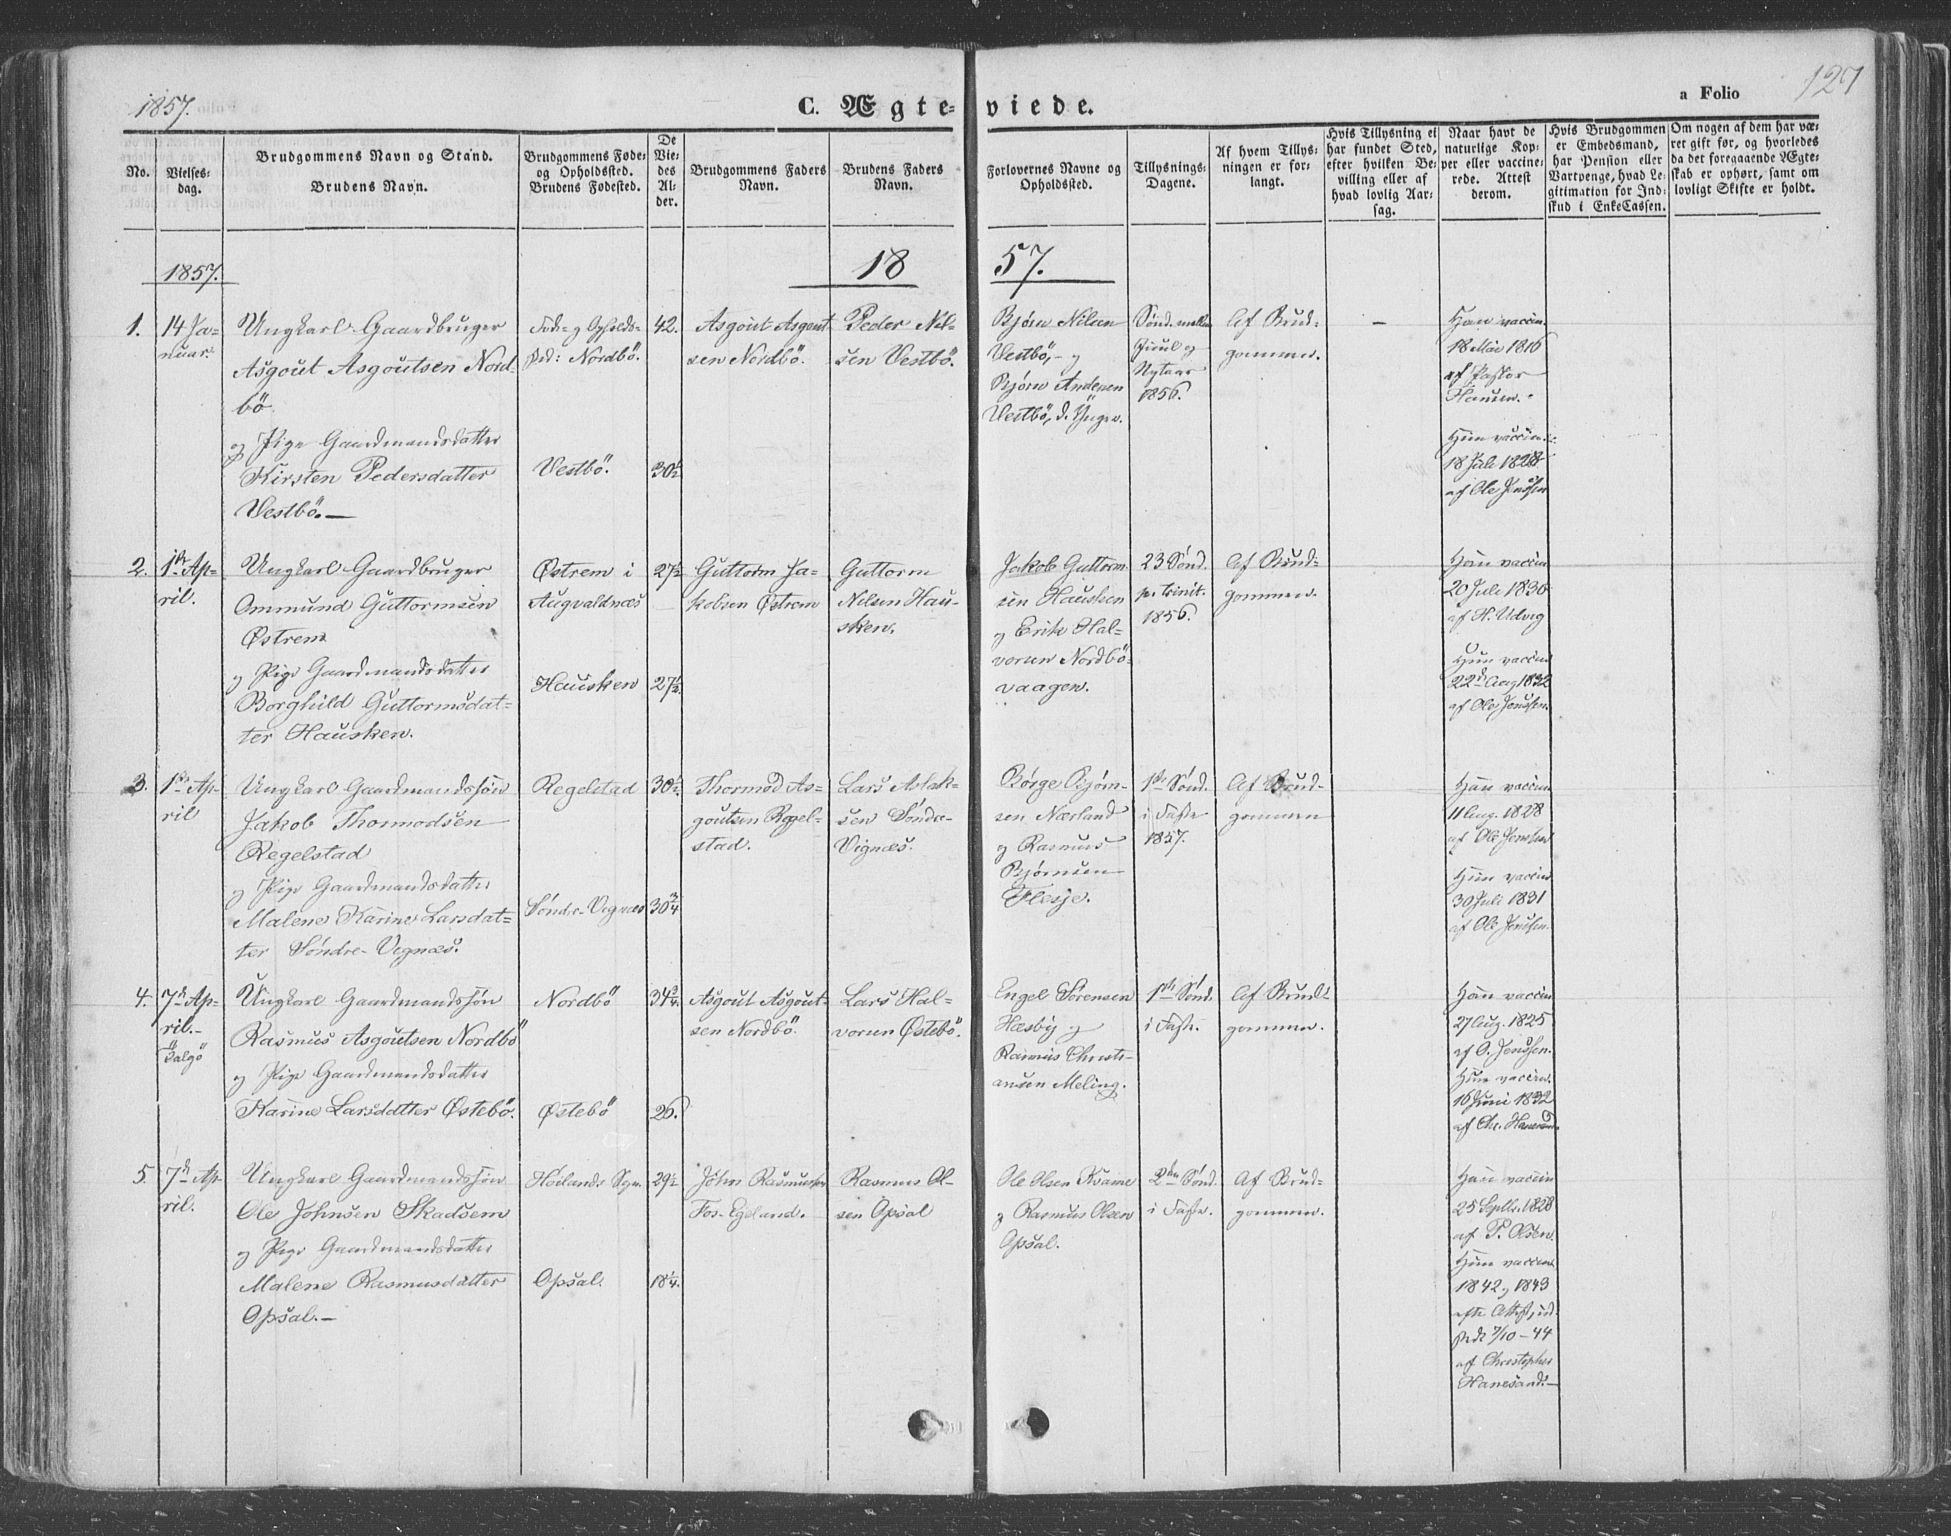 1857.
C. Ægte-
viede.
a Folio
127
No.
Vielses-
dag.
Brudgommens Navn og Stand.
Brudens Navn.
Brudgommens Føde-
og Opholdssted.
Brudens Fødested.
De
Vie-
des
Al-
der.
Brudgommens Faders
Navn.
Brudens Faders
Navn.
Forlovernes Navne og
Opholdssted.
Tillysnings-
Dagene.
Af hvem Tillys-
ningen er for-
langt.
Hvis Tillysning ei
har fundet Sted,
efter hvilken Be-
villing eller af
hvad lovlig Aar-
sag.
Naar havt de
naturlige Kop-
per eller vaccine-
rede. Attest
derom.
Hvis Brudgommen
er Embedsmand,
har Pension eller
Vartpenge, hvad Le-
gitimation for Ind-
skud i EnkeCassen.
Om nogen af dem har væ-
ret gift før, og hvorledes
da det foregaaende Ægte-
skab er ophørt, samt om
lovligt Skifte er holdt.
1857.
18
57.
1.
14 Ja-
nuar
Ungkarl Gaardbruger
Asgout Asgoutsen Nord-
bö
og Pige Gaardmandsdatter
Kirsten Pedersdatter
Vestbö.—
Föde- og Opholds-
sted: Nordbö.
Vestbö.
42.
30½
Asgout Asgout
sen Nordbö.
Peder Nil-
sen Vestbö.
Bjørn Nilsen
Vestbö, og
Bjørn Andersen
Vestbö, d. Yngre.
Sönd. mellem
Juul og
Nytaar
1856.
Af Brud-
gommen.
—
Han vaccin.
18 Mai 1816
af Pastor
Hansen.
Hun vaccin.
18 Juli 1828
af Ole Jenssen
2.
1ste Ap-
ril.
Ungkarl Gaardbruger
Ommund Guttormsen
Østrem
og Pige Gaardmandsdatter
Borghild Guttormsdat-
ter Hausken.
Østrem i
Augvaldnæs
Hausken
27½
27½
Guttorm Ja-
kobsen Østrem
Guttorm
Nilsen Hau-
sken.
Jakob Guttorm-
sen Hausken
og Erik Hal-
vorsen Nordbö-
vaagen.
23 Sönd.
p. trinit.
1856.
Af Brud-
gommen.
Han vaccin
20 Juli 1830
af H. Udvig
Hun vaccin
22d Aug 1832
af Ole Jenssen.
3.
1ste Ap-
ril
Ungkarl Gaardmandssön
Jakob Thormodsen
Regelstad
og Pige Gaardmandsdatter
Malene Karine Larsdat-
ter Söndre-Vignæs.
Regelstad
Söndre-Vignæs
30½
30¾
Thormod As-
goutsen Regel-
stad.
Lars Aslak-
sen Söndre-
Vignæs.
Børge Bjørn-
sen Nærland
og Rasmus
Bjørnsen
Flesje.
1ste Sönd.
i Faste
1857.
Af Brud-
gommen
Han vaccin
11 Aug. 1828
af Ole Jenssen
Hun vaccin
30 Juli 1831
af Ole Jenssen.
4.
7de Ap-
ril.-
Talgö
Ungkarl Gaardmandssön
Rasmus Asgoutsen Nordbö
og Pige Gaardmandsdatter
Karine Larsdatter Østebö.
Nordbö
Østebö
34¾.
26.
Asgout Asgout-
sen Nordbö.
Lars Hal-
vorsen Østebö.
Engel Sörensen
Hæsby og
Rasmus Christi-
ansen Meling.
1ste Sönd.
i Faste.
Af Brud-
gommen.
Han vaccin
27 Aug. 1825
af O. Jenssen.
Hun vaccin.
16 Juni 1832
af Chr. Hanesand.
5.
7de Ap-
ril.
Ungkarl Gaardmandssön
Ole Johnsen Skadsem
og Pige Gaardmandsdatter
Malene Rasmusdatter
Opsal.—
Höilands Sgn.
Opsal.
29½
18¼.
John Rasmussen
Fos-Egeland.
Rasmus Ol-
sen Opsal
Ole Olsen Kvame
og Rasmus Olsen
Opsal.
2den Sönd.
i Faste.
Af Brud-
gommen.
Han vaccin
25 Septbr. 1828
af P. Olsen.
Hun vaccin
1842 og 1843
efter Attest, ud-
stedt 7/10-44
af Christopher
Hanesand.—